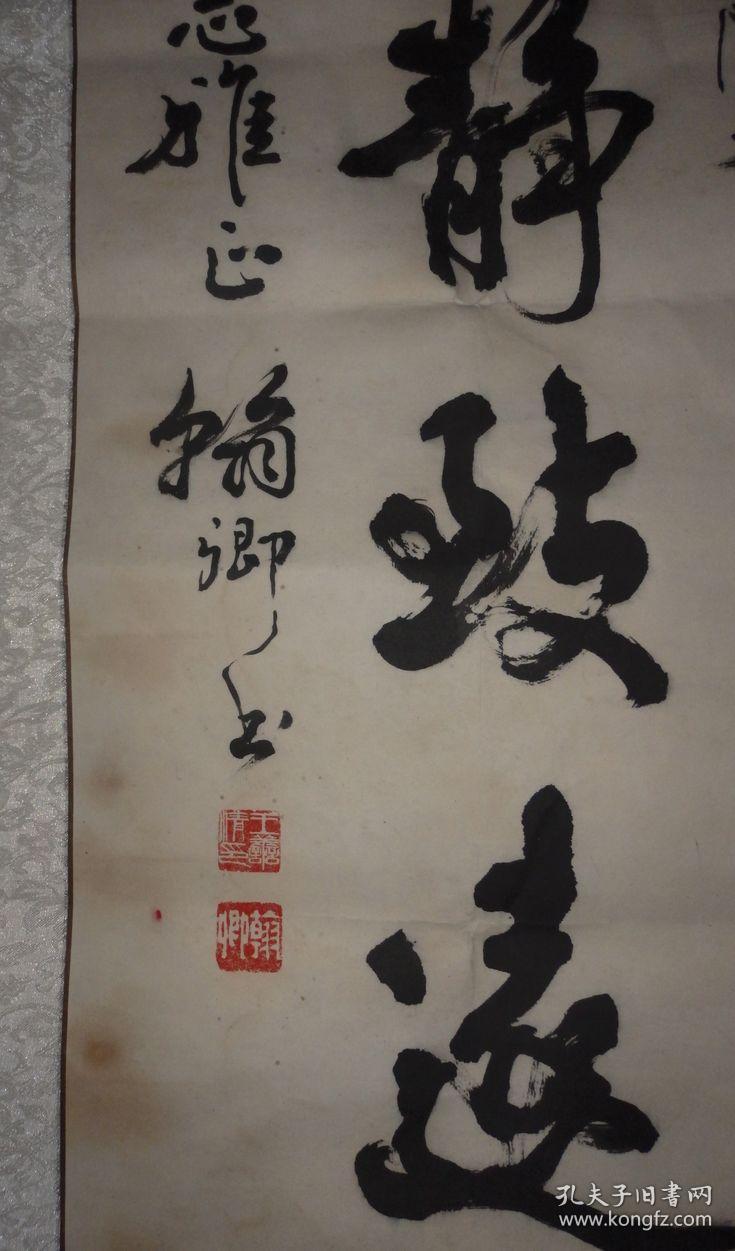 靜致遠
雅正
翰卿書
王善清印
翰卿
孔夫子旧書网
www.kongfz.com